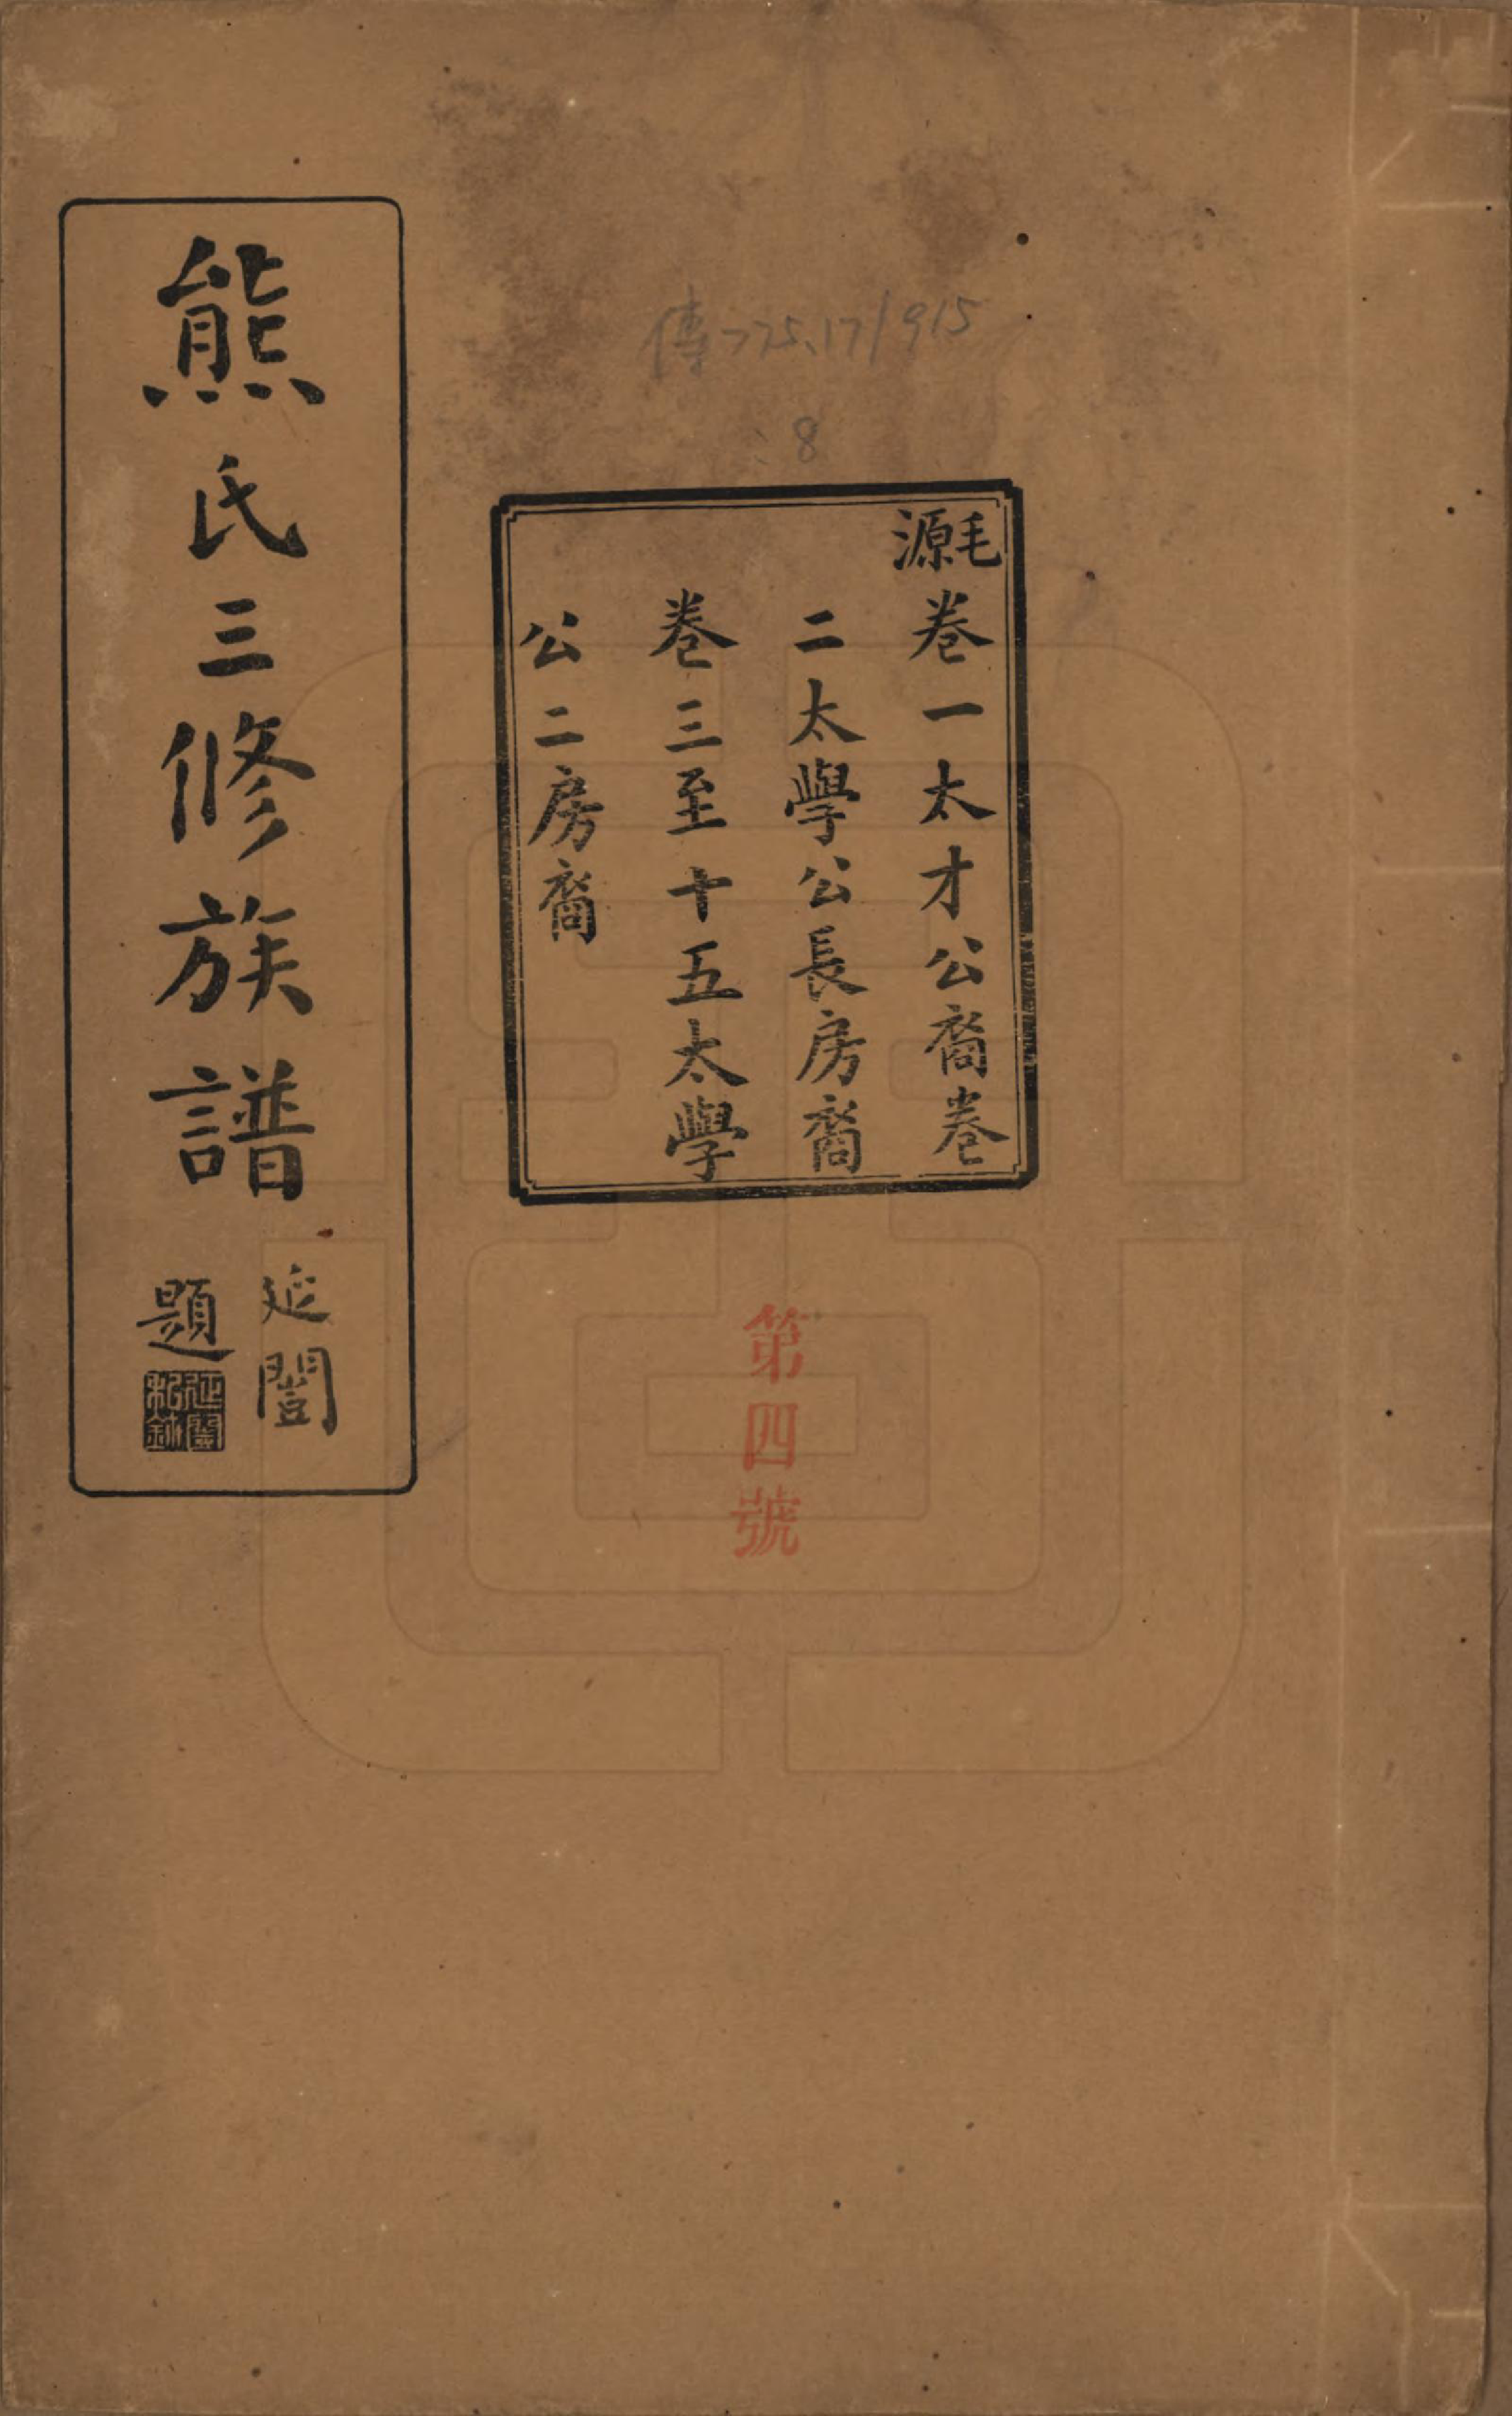 傳775.17/915
:8
毛源
卷一太才公裔卷
二太學公長房裔
卷三至十五太學
公二房裔
熊氏三修族譜
延闓
題
第四號